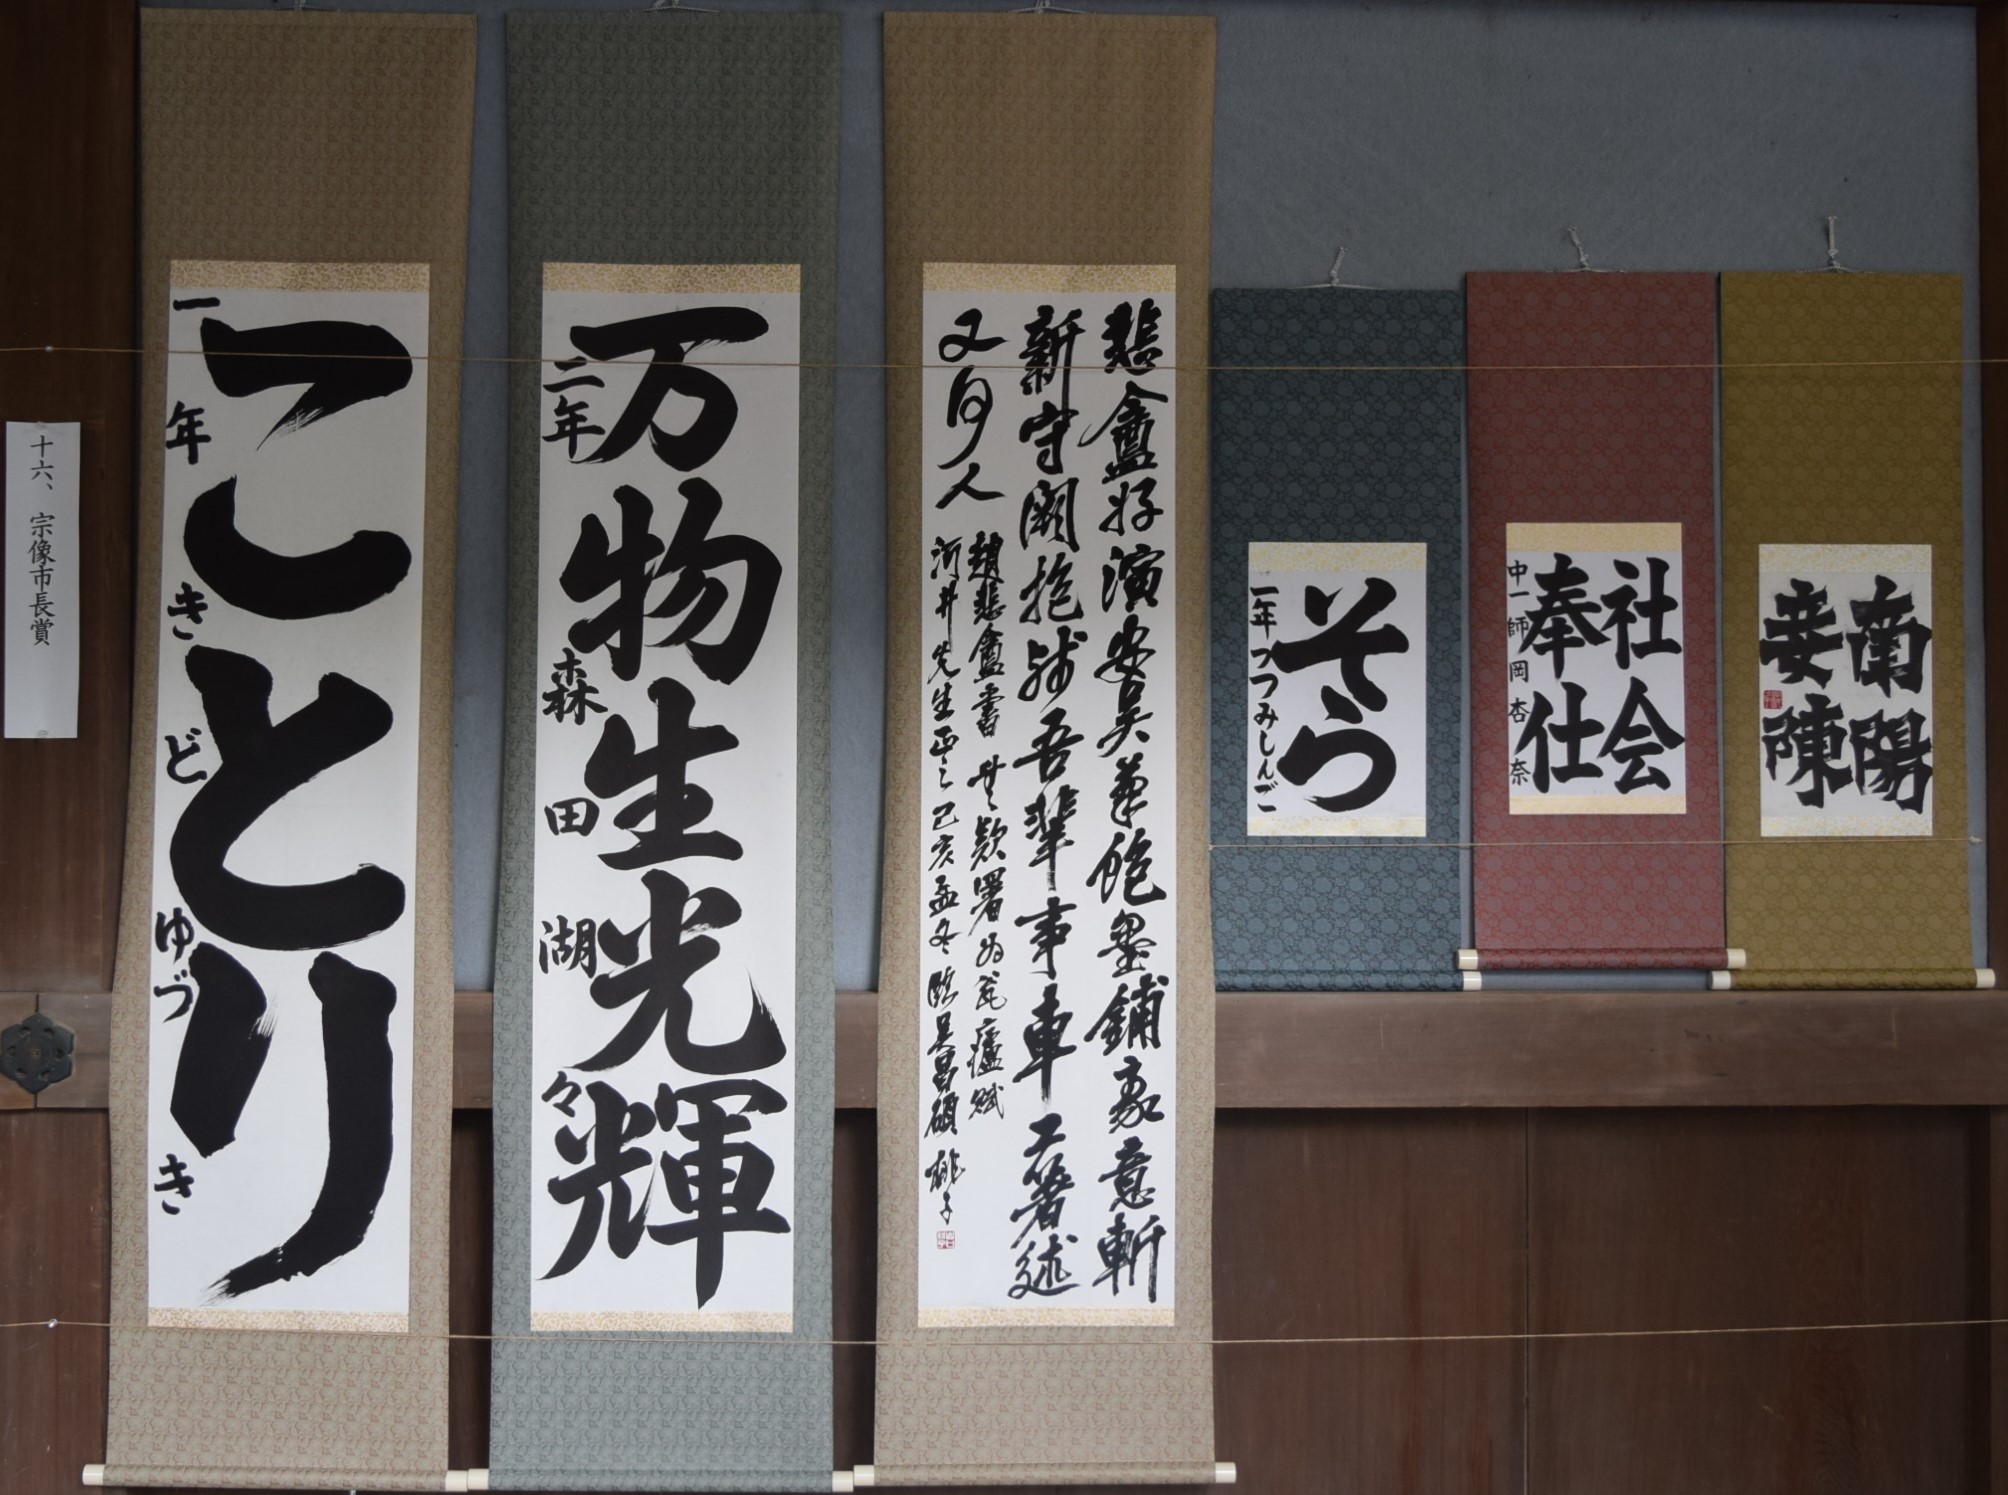 十六、宗像市長賞
ことり
一年 きどゆづき
万物生光輝
二年 森田湖々
悲盦好演安吳筆飽墨鋪豪意斬
新守闕抱残吾輩事車工著述
又何人
趙悲盦書 無款署為瓮廬賦
河井先生正之己亥孟冬臨吳昌碩 桃子
そら
一年つつみしんご
社会
奉仕
中一師岡杏奈
南陽
妾陳